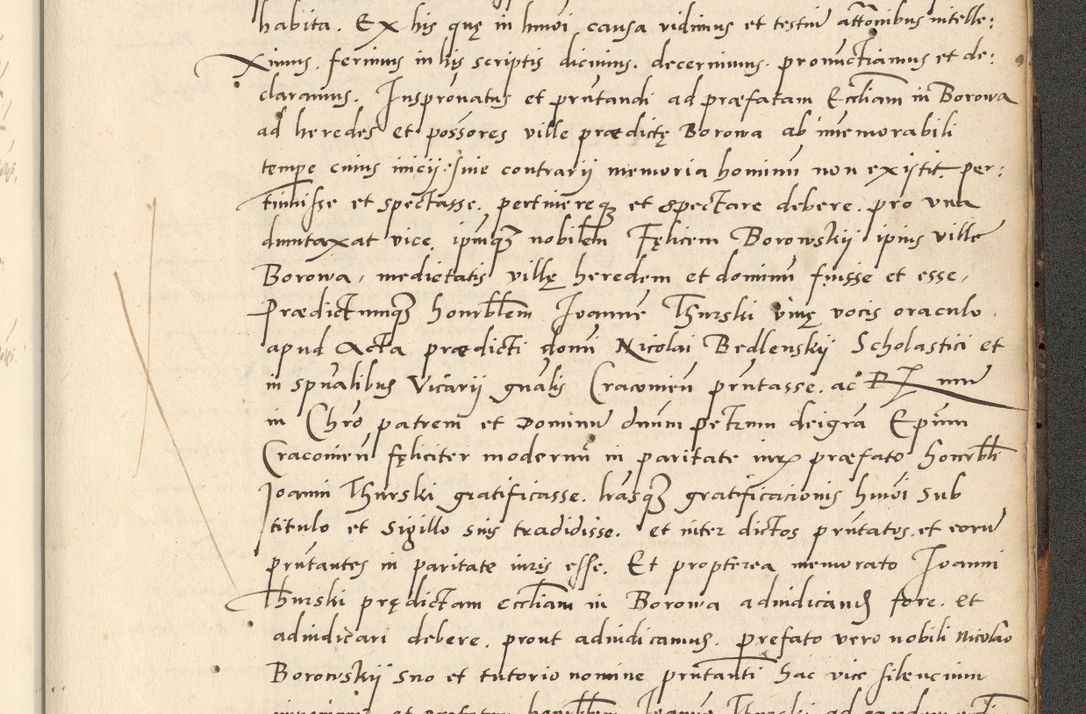 habita. Ex his quę in hmoi causa vidimus et testiū attōnibus intelle:
ximus, ferimus in his scriptis dicimus, decernimus, pronuctiamus et de:
claramus. Juspronatus et prūtandi ad præfatam Eccliam in Borowa
ad heredes et possores ville prædictę Borowa ab immemorabili
tempe cuius inicij siue contrarii memoria hominū non existit per:
tinuisse et spectasse, pertinereq et spectare debere, pro una
duntaxat vice, ipmq nobilem Fęlicem Borowskij ipius ville
Borowa, medietatis villę heredem et dominū fuisse et esse,
Prædictumq honrblem Joannē Thurski vmę vocis oraculo
apud Acta prædicti domi Nicolai Bedlenskij Scholastici et
in spūalibus Vicarij gnalis Cracouien prūtasse, ac
in Chro patrem et Dominū dnum petrum deigra Epum
Cracouien fęliciter modernū in paritate præfato honrbli
Joanni Thurski gratificasse, lrasq gratificacionis hmoi sub
titulo et sigillo suis tradidisse, et inter dictos prūtatos et eorū
prūtantes in paritate iuris esse, Et propterea memorato Joanni
Thurski prędictam Eccliam in Borowa adiudicand fore, et
adiudicari debere, prout adiudicamus, prefato vero nobili Nicolao
Borowskij suo et tutorio nomine prūtanti hac vice silencium